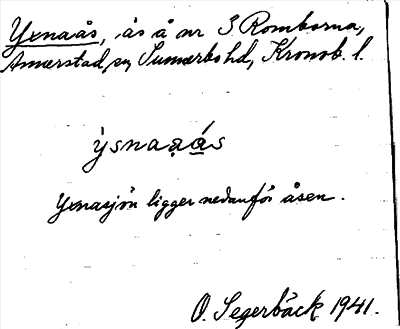 Yxnaås, ås å nr 3 Romborna,
Annerstad sn, Sunnerbo hd, Kronob. l.
ýsnaạás
Yxnasjön ligger nedanför åsen.
O. Segerbäck 1941.